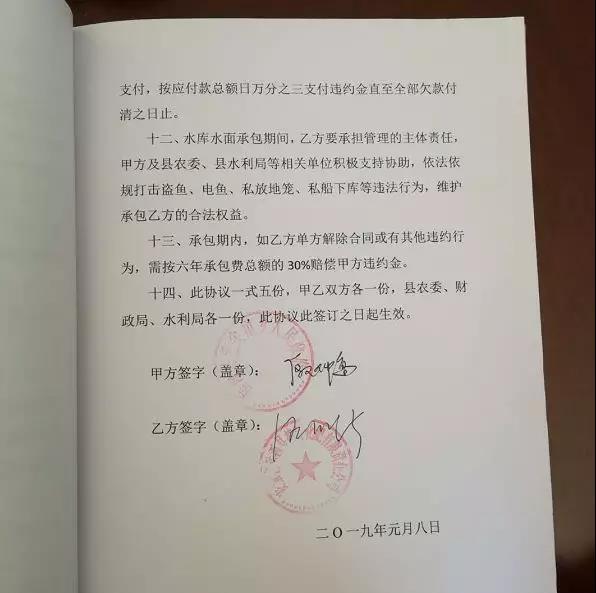 支付，按应付款总额日万分之三支付违约金直至全部欠款付
清之日止。
十二、水库水面承包期间，乙方要承担管理的主体责任，
甲方及县农委、县水利局等相关单位积极支持协助，依法依
规打击盗鱼、电鱼、私放地笼、私船下库等违法行为，维护
承包乙方的合法权益。
十三、承包期内，如乙方单方解除合同或有其他违约行
为，需按六年承包费总额的 30%赔偿甲方违约金。
十四、此协议一式五份，甲乙双方各一份，县农委、财
政局、水利局各一份，此协议此签订之日起生效。
甲方签字（盖章）：
乙方签字（盖章）：
二О一九年元月八日